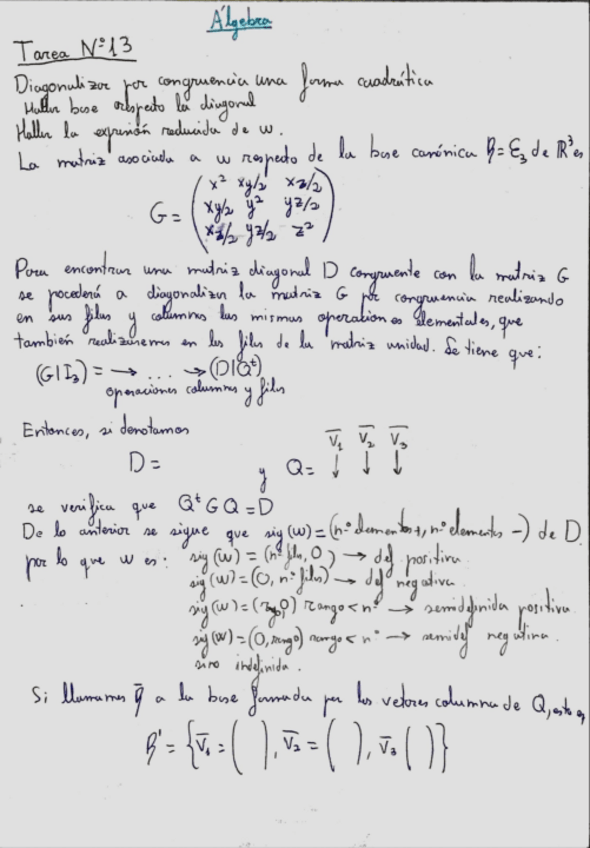 Álgebra
Tarea Nº13
Diagonalizar por congruencia una forma cuadrática
Hallar base respecto la diagonal
Hallar la expresión reducida de w.
La matriz asociada a w respecto de la base canónica B=Ɛ₃ de ℝ³ es
x² xy/2 xz/2
G = xy/2 y² yz/2
xz/2 yz/2 z²
Para encontrar una matriz diagonal D congruente con la matriz G
se pocederá a diagonalizar la matriz G por congruencia realizando
en sus filas y columnas las mismas operaciones elementales, que
también realizaremos en las filas de la matriz unidad. Se tiene que:
(G|I₃) = → ... → (D|Qᵗ)
operaciones columnas y filas
Entonces, si denotamos
V₁ V₂ V₃
D = y Q = ↓ ↓ ↓
se verifica que QᵗGQ=D
De lo anterior se sigue que sig(w)=(nº elementos+, nº elementos -) de D.
por lo que w es: sig(w) = (nº filas, 0) → def positiva.
sig(w) = (0, nº filas) → def negativa.
sig(w) = (rg, 0) rango < nº → semidefinida positiva.
sig(w) = (0, rango) rango < nº → semidef negativa.
sino indefinida.
Si llamamos a la base formada por los vetores columna de Q, esto es
B' = {V₁ = ( ), V₂ = ( ), V₃ ( )}